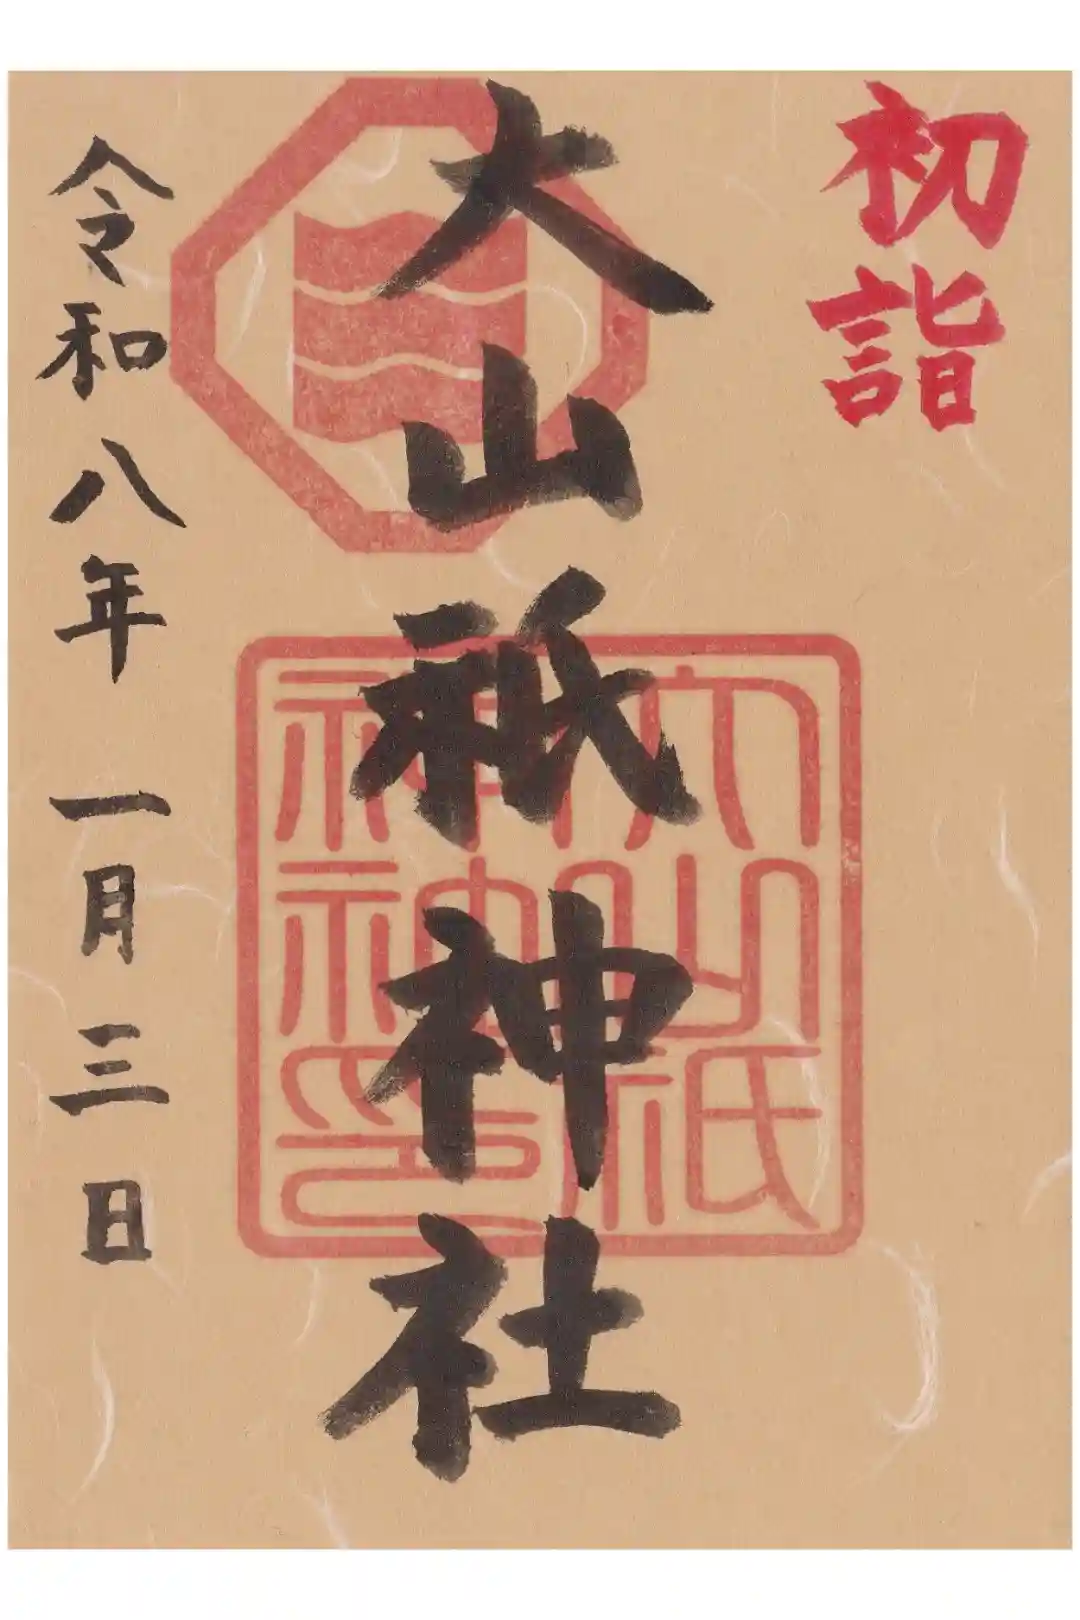 初詣
大山祇神社
大山祇
神社神印
令和八年 一月三日